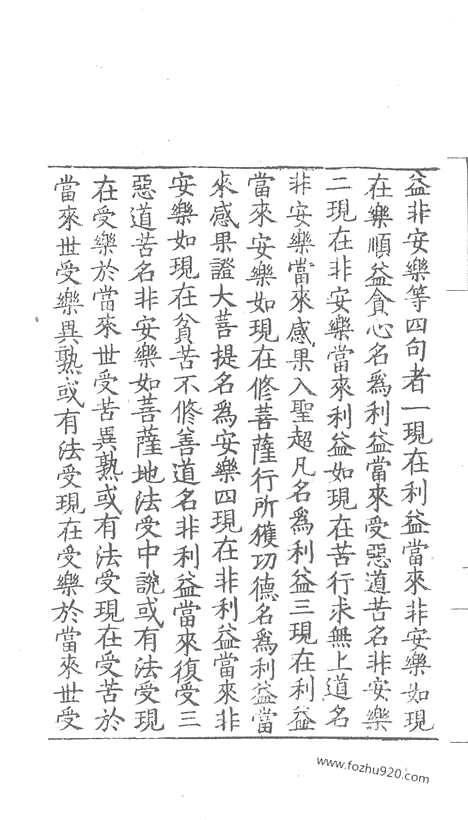 益非安樂等四句者一現在利益當來非安樂如現
在樂順益貪心名爲利益當來受惡道苦名非安樂
二現在非安樂當來利益如現在苦行求無上道名
非安樂當來感果入聖超凡名爲利益三現在利益
當來安樂如現在修菩薩行所獲功德名爲利益當
來感果證大菩提名爲安樂四現在非利益當來非
安樂如現在貧苦不修善道名非利益當來復受三
惡道苦名非安樂如菩薩地法受中說或有法受現
在受樂於當來世受苦異熟或有法受現在受苦於
當來世受樂異熟或有法受現在受樂於當來世受
www.fozhu920.com